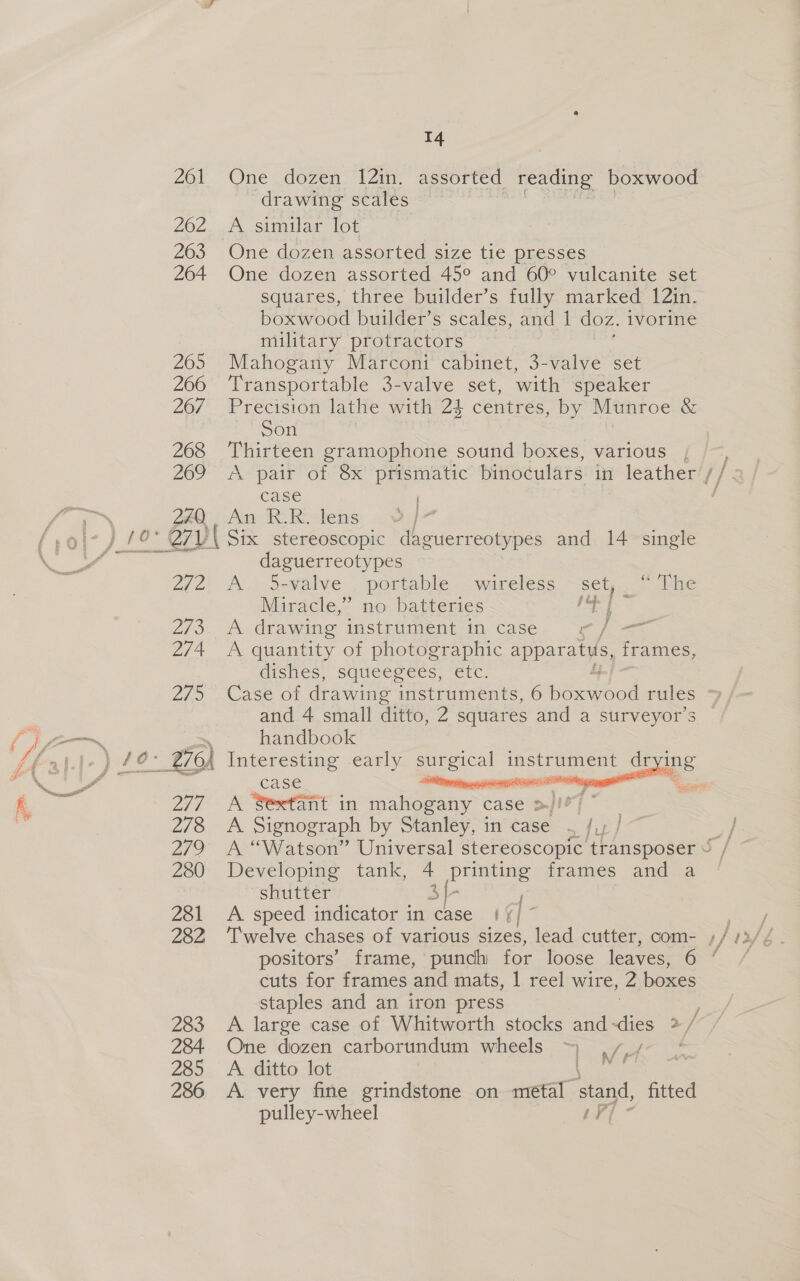 14
261 One dozen 12in. assorted reading boxwood
drawing scales
262 A similar lot
263 One dozen assorted size tie presses
264 One dozen assorted 45° and 60° vulcanite set
squares, three builder's fully marked 12in.
boxwood builder's scales, and 1 doz. ivorine
military protractors
265 Mahogany Marconi cabinet, 3-valve set
266 Transportable 3-valve set, with speaker
267 Precision lathe with 2½ centres, by Munroe &
Son
268 Thirteen gramophone sound boxes, various
269 A pair of 8x prismatic binoculars in leather
case
270 An R.R. lens
271 Six stereoscopic daguerreotypes and 14 single
daguerreotypes
272 A 5-valve portable wireless set, "The
Miracle," no batteries
273 A drawing instrument in case
274 A quantity of photographic apparatus, frames,
dishes, squeegees, etc.
275 Case of drawing instruments, 6 boxwood rules
and 4 small ditto, 2 squares and a surveyor's
handbook
276 Interesting early surgical instrument drying
case
277 A sextant in mahogany case
278 A Signograph by Stanley, in case
279 A "Watson" Universal stereoscopic transposer
280 Developing tank, 4 printing frames and a
shutter
281 A speed indicator in case
282 Twelve chases of various sizes, lead cutter, com-
positors' frame, punch for loose leaves, 6
cuts for frames and mats, 1 reel wire, 2 boxes
staples and an iron press
283 A large case of Whitworth stocks and dies
284 One dozen carborundum wheels
285 A ditto lot
286 A very fine grindstone on metal stand, fitted
pulley-wheel